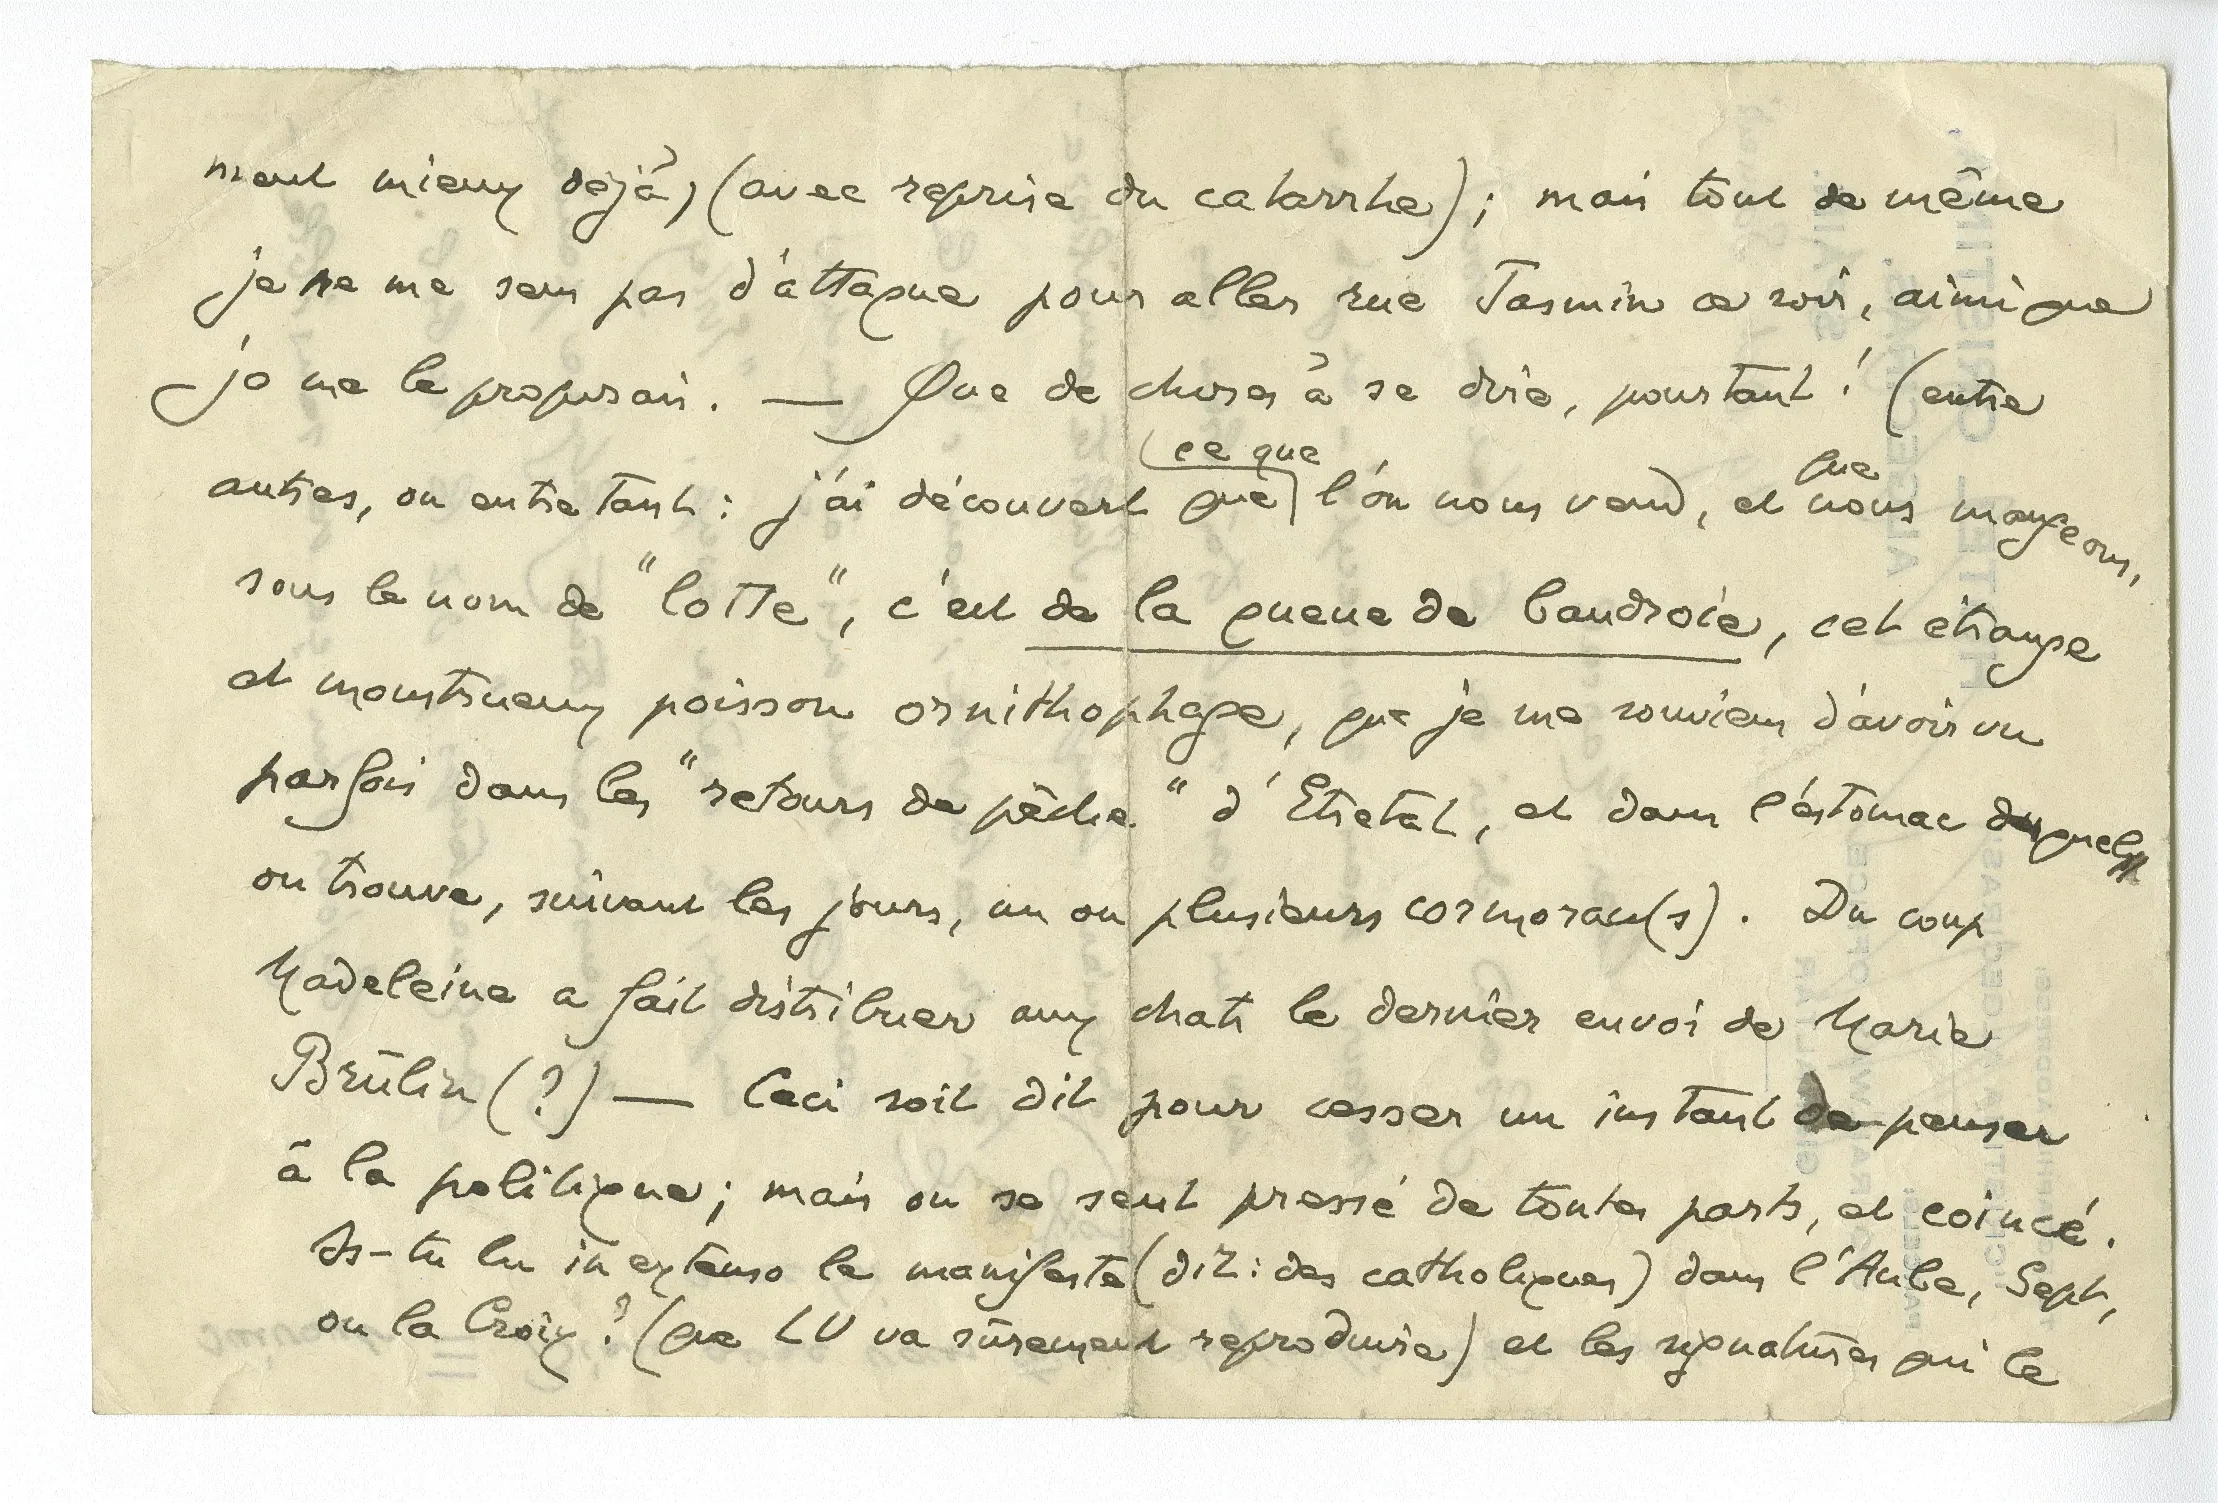 ment mieux déjà, (avec reprise du catarrhe); mais tout de même
je ne me sens pas d'attaque pour aller rue Jasmin ce soir, ainsi que
je me le proposais. — Que de choses à se dire, pourtant ! (entre
autres, ou entre tant : j'ai découvert que ce que l'on nous vend, et que nous mangeons,
sous le nom de "lotte", c'est de la queue de baudroie, cet étrange
et monstrueux poisson ornithophage, que je me souviens d'avoir vu
parfois dans les "retours de pêche" d'Etretat, et dans l'estomac duquel
on trouve, suivant les jours, un ou plusieurs cormoran(s). Du coup
Madeleine a fait distribuer aux chats le dernier envoi de Marie
Brûlin (?) — Ceci soit dit pour cesser un instant de penser
à la politique; mais on se sent pressé de toutes parts, et coincé.
As-tu lu in extenso le manifeste (dit : des catholiques) dans l'Aube, Sept,
ou la Croix ? (que LU va sûrement reproduire) et les signatures qui le